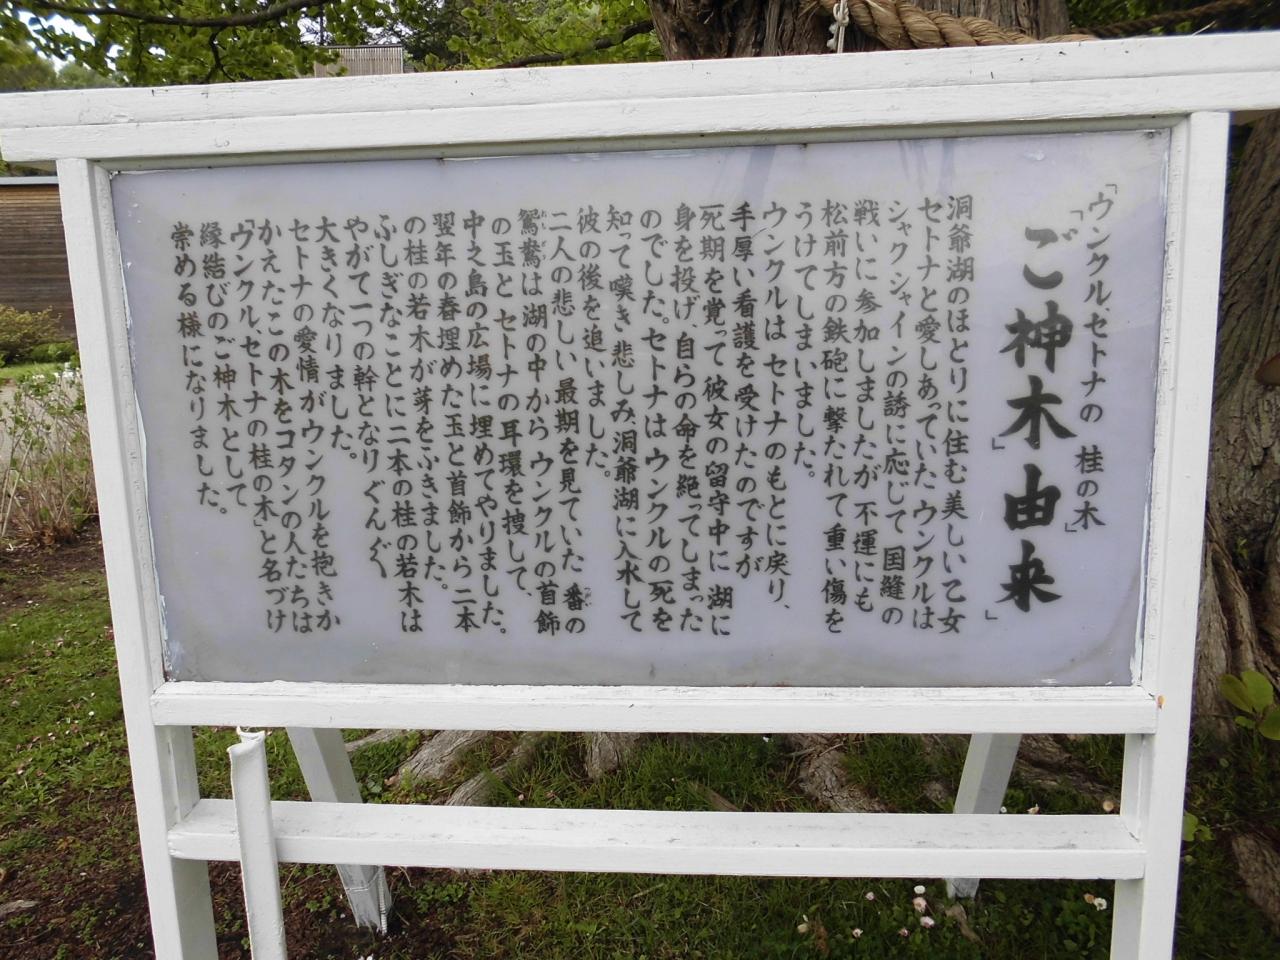 「ウンクル、セトナの 桂の木」
「ご神木」由来」
洞爺湖のほとりに住む美しい乙女
セトナと愛しあっていたウンクルは
シャクシャインの誘に応じて国縫の
戦いに参加しましたが不運にも
松前方の鉄砲に撃たれて重い傷を
うけてしまいました。
ウンクルはセトナのもとに戻り、
手厚い看護を受けたのですが
死期を覚って彼女の留守中に湖に
身を投げ、自らの命を絶ってしまった
のでした。セトナはウンクルの死を
知って嘆き悲しみ、洞爺湖に入水して
彼の後を追いました。
二人の悲しい最期を見ていた番の
鴛鴦は湖の中からウンクルの首飾
の玉とセトナの耳環を捜して、
中之島の広場に埋めてやりました。
翌年の春埋めた玉と首飾から二本
の桂の若木が芽をふきました。
ふしぎなことに二本の桂の若木は
やがて一つの幹となりぐんぐん
大きくなりました。
セトナの愛情がウンクルを抱きか
かえたこの木をコタンの人たちは
「ウンクル、セトナの桂の木」と名づけ
縁結びのご神木として
崇める様になりました。